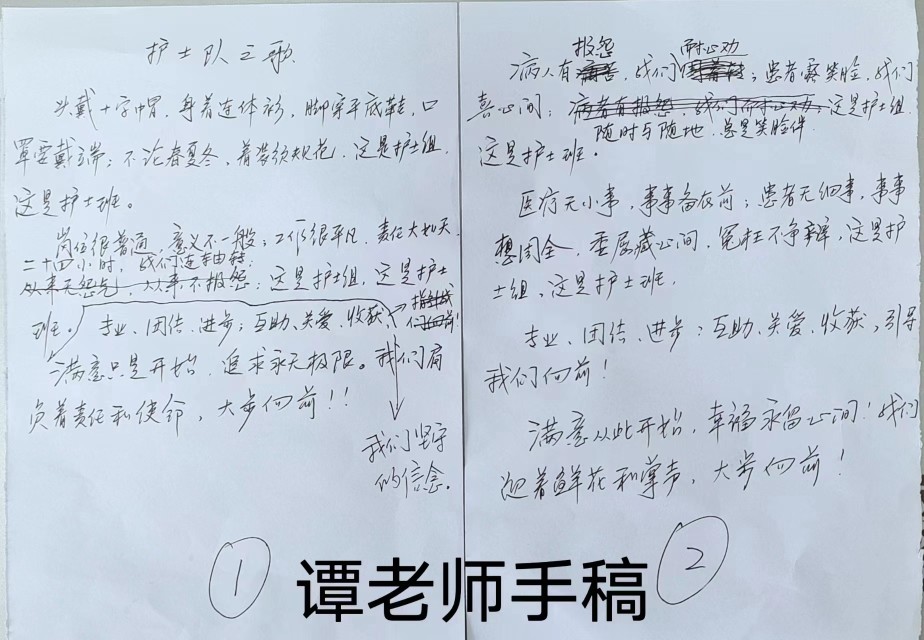 护士队之歌
头戴十字帽，身着连体衫，脚穿平底鞋，口
罩需戴端；不论春夏冬，着装须规范，这是护士组，
这是护士班。
岗位很普通，意义不一般；工作很平凡，责任大如天，
二十四小时，我们连轴转；
从来不报怨；这是护士组，这是护士
班。 专业、团结、进步；互助、关爱、收获，
满意只是开始，追求永无极限。我们肩
负着责任和使命，大步向前！！
我们坚守
的信念。
1
报怨 耐心劝
病人有 ，我们 ；患者露笑脸，我们
喜心间； 这是护士组
随时与随地，总是笑脸伴
这是护士班。
医疗无小事，事事备在前；患者无细事，事事
想周全，委屈藏心间，冤枉不争辩，这是护
士组、这是护士班。
专业、团结、进步；互助、关爱、收获，引导
我们向前！
满意从此开始，幸福永留心间！我们
迎着鲜花和掌声，大步向前！
2
谭老师手稿